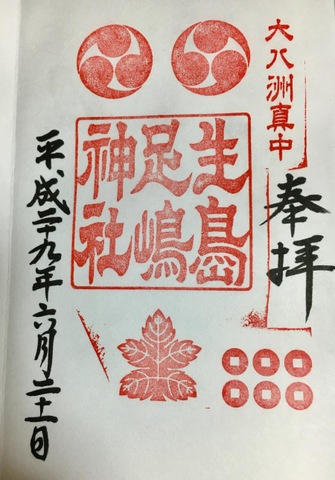 大八洲真中
奉拝
生島
足嶋
神社
平成二十九年六月二十一日